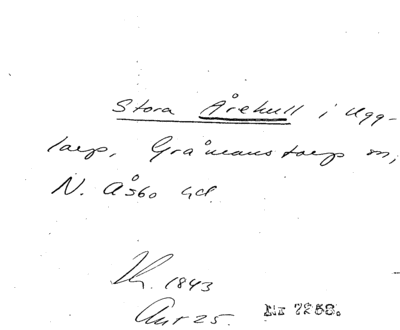 Stora Årekull i Ugg-
larp, Gråmanstorp sn,
N. Åsbo hd
1843
Avt 25. Nr 7258.